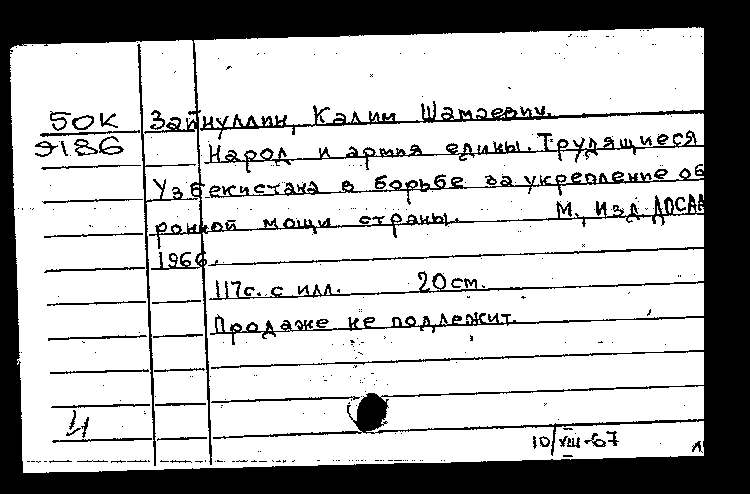 50К Зайнуллин, Калим Шамаевич.
9186 Народ и армия едины. Трудящиеся
Узбекистана в борьбе за укрепление об
ронной мощи страны. М., Изд. ДОСАА
1966.
117с. с илл. 20 см.
Продаже не подлежит.
4
10/VIII-67